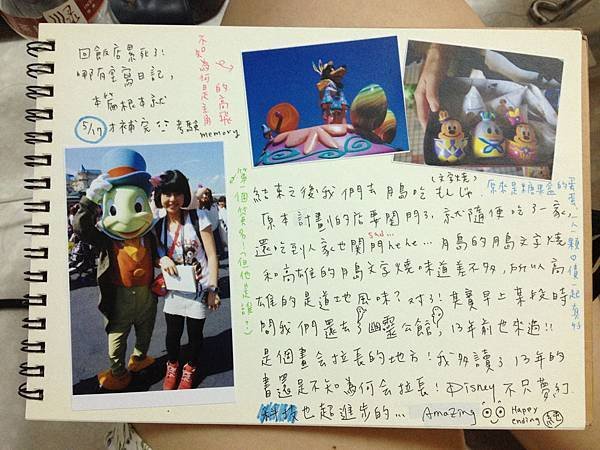 回飯店累死了!
哪有會寫日記,
本篇根本就
5/17才補完 考驗
memory
不知為何是主角
的高飛
第一個簽名(但他是誰?)
結束之後我們去月島吃もんじゃ
(文字燒)
原來是糖果盒的蛋蛋,
原本計劃的店要關門了,就隨便吃了一家,
還吃到人家也關門 sad... 月島的月島文字燒
和高雄的月島文字燒味道差不多,所以高
雄的是道地風味?對了!其實早上某段時
間我們還去了幽靈公館,13年前也來過!!
是個畫会拉長的地方!我多讀了13年的
書還是不知為何会拉長!Disney不只夢幻
科技也超進步的... Amazing
Happy
ending